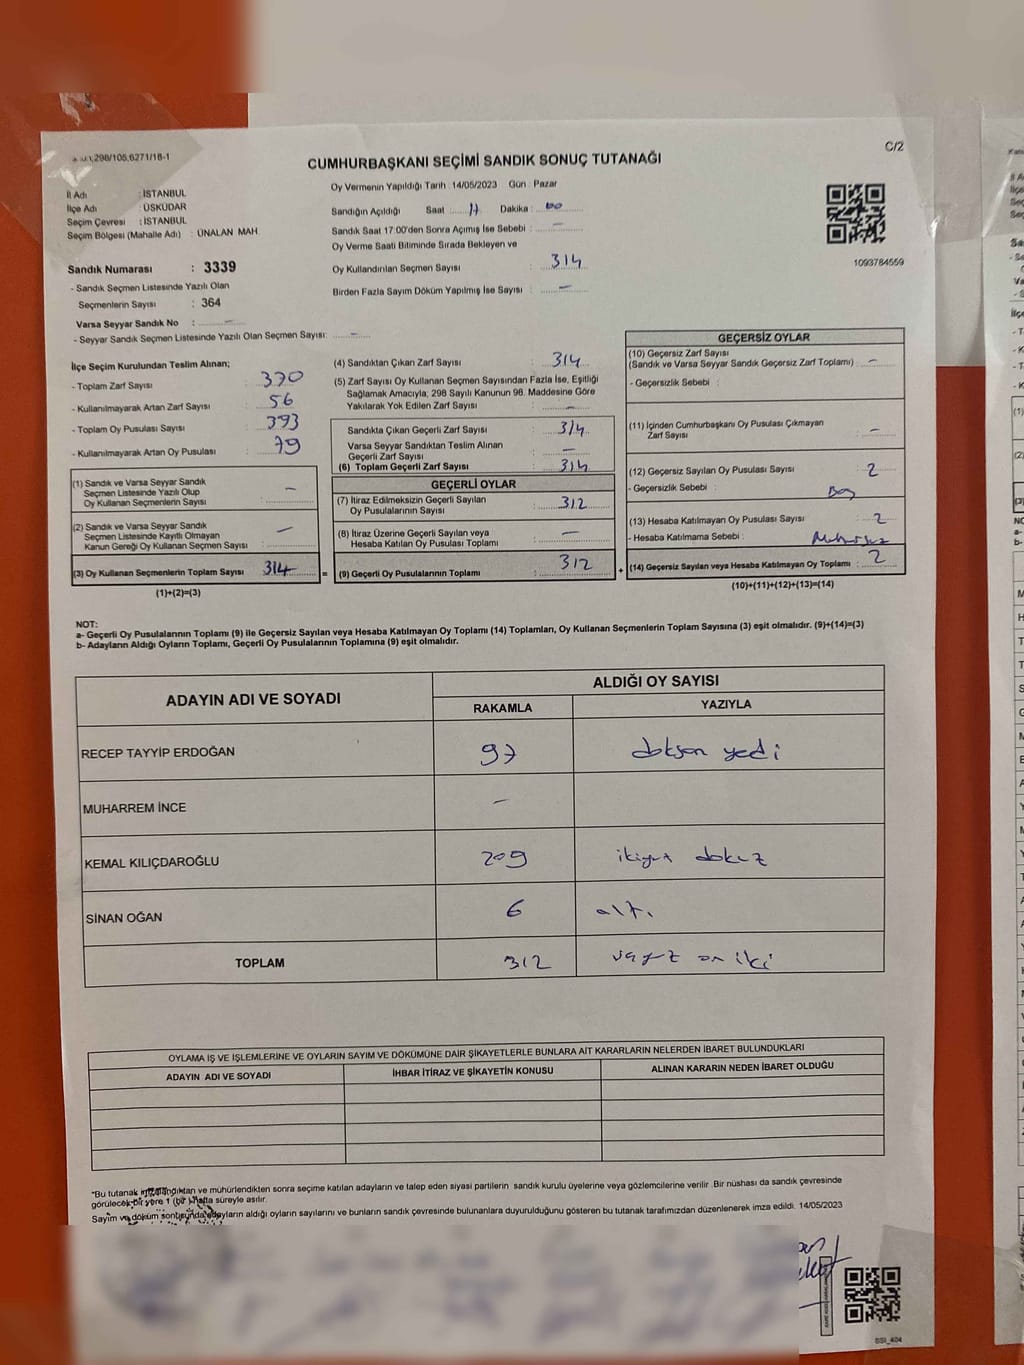 298/105,6271/18-1
C/2
CUMHURBAŞKANI SEÇİMİ SANDIK SONUÇ TUTANAĞI
İl Adı : İSTANBUL
İlçe Adı : ÜSKÜDAR
Seçim Çevresi : İSTANBUL
Seçim Bölgesi (Mahalle Adı) : ÜNALAN MAH
Sandık Numarası : 3339
- Sandık Seçmen Listesinde Yazılı Olan
Seçmenlerin Sayısı : 364
Varsa Seyyar Sandık No : –
- Seyyar Sandık Seçmen Listesinde Yazılı Olan Seçmen Sayısı: –
Oy Vermenin Yapıldığı Tarih : 14/05/2023 Gün : Pazar
Sandığın Açıldığı Saat 17 Dakika : 00
Sandık Saat 17:00'den Sonra Açımış İse Sebebi : –
Oy Verme Saati Bitiminde Sırada Bekleyen ve
Oy Kullandırılan Seçmen Sayısı : 314
Birden Fazla Sayım Döküm Yapılmış İse Sayısı : –
1093784559
İlçe Seçim Kurulundan Teslim Alınan;
- Toplam Zarf Sayısı : 370
- Kullanılmayarak Artan Zarf Sayısı : 56
- Toplam Oy Pusulası Sayısı : 393
- Kullanılmayarak Artan Oy Pusulası : 79
(1) Sandık ve Varsa Seyyar Sandık
Seçmen Listesinde Yazılı Olup
Oy Kullanan Seçmenlerin Sayısı : –
(2) Sandık ve Varsa Seyyar Sandık
Seçmen Listesinde Kayıtlı Olmayan
Kanun Gereği Oy Kullanan Seçmen Sayısı : –
(3) Oy Kullanan Seçmenlerin Toplam Sayısı 314 =
(1)+(2)=(3)
(4) Sandıktan Çıkan Zarf Sayısı : 314
(5) Zarf Sayısı Oy Kullanan Seçmen Sayısından Fazla İse, Eşitliği
Sağlamak Amacıyla; 298 Sayılı Kanunun 98. Maddesine Göre
Yakılarak Yok Edilen Zarf Sayısı : –
Sandıkta Çıkan Geçerli Zarf Sayısı : 314
Varsa Seyyar Sandıktan Teslim Alınan
Geçerli Zarf Sayısı : –
(6) Toplam Geçerli Zarf Sayısı : 314
GEÇERLİ OYLAR
(7) İtiraz Edilmeksizin Geçerli Sayılan
Oy Pusulalarının Sayısı : 312
(8) İtiraz Üzerine Geçerli Sayılan veya
Hesaba Katılan Oy Pusulası Toplamı : –
(9) Geçerli Oy Pusulalarının Toplamı : 312 +
GEÇERSİZ OYLAR
(10) Geçersiz Zarf Sayısı
(Sandık ve Varsa Seyyar Sandık Geçersiz Zarf Toplamı) : –
- Geçersizlik Sebebi :
(11) İçinden Cumhurbaşkanı Oy Pusulası Çıkmayan
Zarf Sayısı : –
(12) Geçersiz Sayılan Oy Pusulası Sayısı : 2
- Geçersizlik Sebebi : Boş
(13) Hesaba Katılmayan Oy Pusulası Sayısı : 2
- Hesaba Katılmama Sebebi : Mühürsüz
(14) Geçersiz Sayılan veya Hesaba Katılmayan Oy Toplamı : 2
(10)+(11)+(12)+(13)=(14)
NOT:
a- Geçerli Oy Pusulalarının Toplamı (9) ile Geçersiz Sayılan veya Hesaba Katılmayan Oy Toplamı (14) Toplamları, Oy Kullanan Seçmenlerin Toplam Sayısına (3) eşit olmalıdır. (9)+(14)=(3)
b- Adayların Aldığı Oyların Toplamı, Geçerli Oy Pusulalarının Toplamına (9) eşit olmalıdır.
ADAYIN ADI VE SOYADI
ALDIĞI OY SAYISI
RAKAMLA YAZIYLA
RECEP TAYYİP ERDOĞAN 97 doksan yedi
MUHARREM İNCE –
KEMAL KILIÇDAROĞLU 209 ikiyüz dokuz
SİNAN OĞAN 6 altı
TOPLAM 312 üçyüz on iki
OYLAMA İŞ VE İŞLEMLERİNE VE OYLARIN SAYIM VE DÖKÜMÜNE DAİR ŞİKAYETLERLE BUNLARA AİT KARARLARIN NELERDEN İBARET BULUNDUKLARI
ADAYIN ADI VE SOYADI İHBAR İTİRAZ VE ŞİKAYETİN KONUSU ALINAN KARARIN NEDEN İBARET OLDUĞU
*Bu tutanak imzalandıktan ve mühürlendikten sonra seçime katılan adayların ve talep eden siyasi partilerin sandık kurulu üyelerine veya gözlemcilerine verilir .Bir nüshası da sandık çevresinde
görülecek bir yere 1 (bir ) hafta süreyle asılır.
Sayım ve döküm sonucunda adayların aldığı oyların sayılarını ve bunların sandık çevresinde bulunanlara duyurulduğunu gösteren bu tutanak tarafımızdan düzenlenerek imza edildi. 14/05/2023
SSI_404